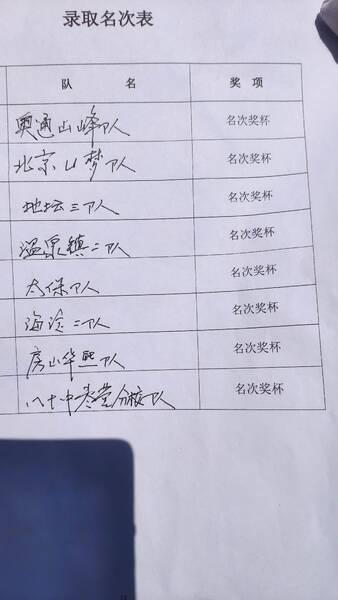 录取名次表
队 名 奖 项
奥通山峰队 名次奖杯
北京U梦队 名次奖杯
地坛三队 名次奖杯
温泉镇二队 名次奖杯
太保队 名次奖杯
海淀二队 名次奖杯
房山华熙队 名次奖杯
八十中枣营分校队 名次奖杯